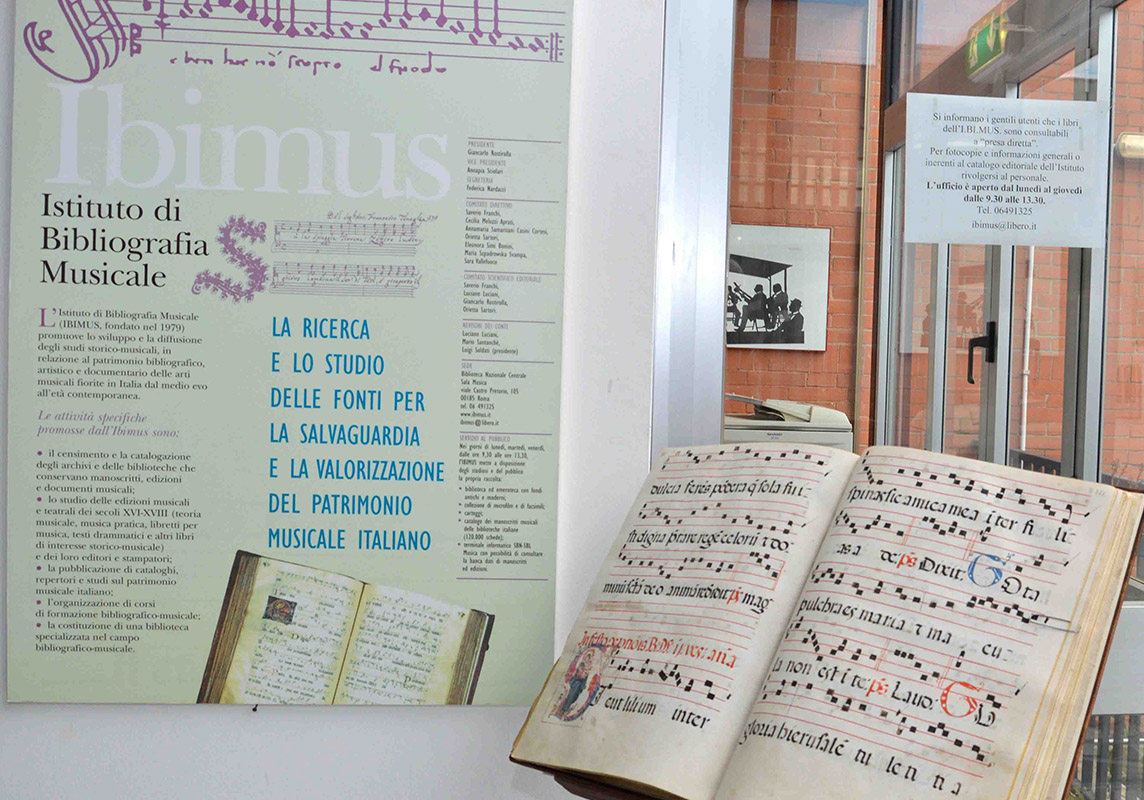 Ibimus
Istituto di
Bibliografia
Musicale
L'Istituto di Bibliografia Musicale
(IBIMUS, fondato nel 1979)
promuove lo sviluppo e la diffusione
degli studi storico-musicali, in
relazione al patrimonio bibliografico,
artistico e documentario delle arti
musicali fiorite in Italia dal medio evo
all'età contemporanea.
Le attività specifiche
promosse dall'Ibimus sono:
• il censimento e la catalogazione
degli archivi e delle biblioteche che
conservano manoscritti, edizioni
e documenti musicali;
• lo studio delle edizioni musicali
e teatrali dei secoli XVI-XVIII (teoria
musicale, musica pratica, libretti per
musica, testi drammatici e altri libri
di interesse storico-musicale)
e dei loro editori e stampatori;
• la pubblicazione di cataloghi,
repertori e studi sul patrimonio
musicale italiano;
• l'organizzazione di corsi
di formazione bibliografico-musicale;
• la costituzione di una biblioteca
specializzata nel campo
bibliografico-musicale.
LA RICERCA
E LO STUDIO
DELLE FONTI PER
LA SALVAGUARDIA
E LA VALORIZZAZIONE
DEL PATRIMONIO
MUSICALE ITALIANO
PRESIDENTE
Giancarlo Rostirolla
VICE PRESIDENTE
Annapia Sciolari
SEGRETERIA
Federica Nardacci
COMITATO DIRETTIVO
Saverio Franchi,
Cecilia Melozzi Aprati,
Annamaria Sarnataro Casini Cortesi,
Orietta Sartori,
Eleonora Simi Bonini,
Maria Szpadrowska Svampa,
Sara Vallefuoco
COMITATO SCIENTIFICO EDITORIALE
Saverio Franchi,
Luciano Luciani,
Giancarlo Rostirolla,
Orietta Sartori
REVISORI DEI CONTI
Luciano Luciani,
Mario Santanché,
Luigi Soldati (presidente)
SEDE
Biblioteca Nazionale Centrale
Sala Musica
viale Castro Pretorio, 105
00185 Roma
tel. 06 491325
www.ibimus.it
ibimus@libero.it
SERVIZIO AL PUBBLICO
Nei giorni di lunedì, martedì, venerdì,
dalle ore 9,30 alle ore 13,30,
l'IBIMUS mette a disposizione
degli studiosi e del pubblico
la propria raccolta:
• biblioteca ed emeroteca con fondi
antichi e moderni;
• collezione di microfilm e di facsimili;
• carteggi,
• catalogo dei manoscritti musicali
delle biblioteche italiane
(120.000 schede);
• terminale informatico SBN-SBL
Musica con possibilità di consultare
la banca dati di manoscritti
ed edizioni.
Si informano i gentili utenti che i libri
dell'I.BI.MUS. sono consultabili
a "presa diretta".
Per fotocopie e informazioni generali o
inerenti al catalogo editoriale dell'Istituto
rivolgersi al personale.
L'ufficio è aperto dal lunedì al giovedì
dalle 9.30 alle 13.30.
Tel. 06491325
ibimus@libero.it
minū
mag
icut lilium inter
spinas sic amica mea iter fi li
pulchra es maria
la non est i te ps Laud
gloria hierusalē tu le ti ti a